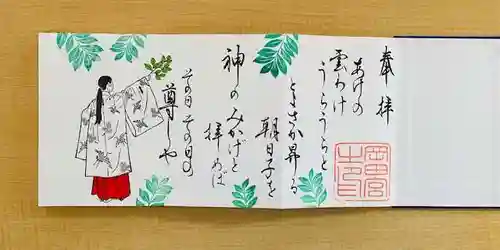 奉拝
あけの
雲わけ
うらうらと
とよさか昇る
朝日子を
神のみかげと
拝めば
その日その日の
尊しや